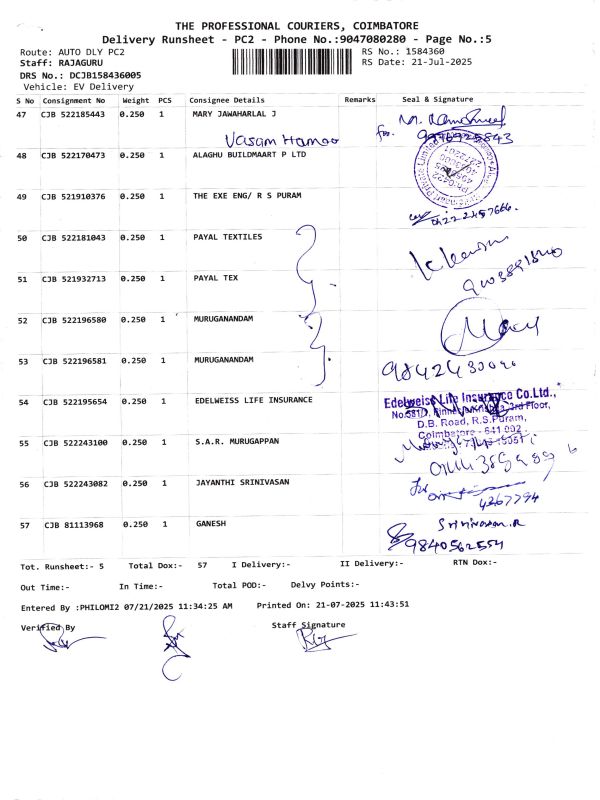 THE PROFESSIONAL COURIERS, COIMBATORE
Delivery Runsheet - PC2 - Phone No.:9047080280 - Page No.:5
Route: AUTO DLY PC2
RS No.: 1584360
Staff: RAJAGURU
RS Date: 21-Jul-2025
DRS No.: DCJB158436005
Vehicle: EV Delivery
S No Consignment No Weight PCS Consignee Details Remarks Seal & Signature
47 CJB 522185443 0.250 1 MARY JAWAHARLAL J
Vasam Hamoo for. 9976925843
48 CJB 522170473 0.250 1 ALAGHU BUILDMAART P LTD
49 CJB 521910376 0.250 1 THE EXE ENG/ R S PURAM
50 CJB 522181043 0.250 1 PAYAL TEXTILES
51 CJB 521932713 0.250 1 PAYAL TEX
52 CJB 522196580 0.250 1 MURUGANANDAM
53 CJB 522196581 0.250 1 MURUGANANDAM
54 CJB 522195654 0.250 1 EDELWEISS LIFE INSURANCE
Edelweiss Life Insurance Co.Ltd.,
3rd Floor,
D.B. Road, R.S.Puram,
Coimbatore - 641 002
55 CJB 522243100 0.250 1 S.A.R. MURUGAPPAN
56 CJB 522243082 0.250 1 JAYANTHI SRINIVASAN
For
4267794
57 CJB 81113968 0.250 1 GANESH
Srinivasan.R
9840562554
Tot. Runsheet:- 5 Total Dox:- 57 I Delivery:- II Delivery:- RTN Dox:-
Out Time:- In Time:- Total POD:- Delvy Points:-
Entered By :PHILOMI2 07/21/2025 11:34:25 AM Printed On: 21-07-2025 11:43:51
Verified By Staff Signature